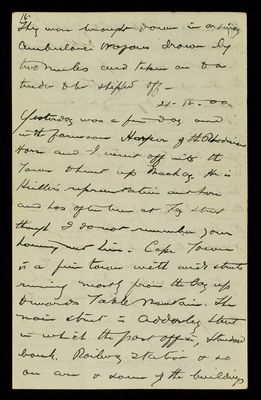 16
They were brought down in ordinary
Ambulance wagons drawn by
two mules and taken on to a
tender to be shipped off —
21-12-00
Yesterday was a fine day and
with Harper of the Rhodesian
Horse and I went off into the
Town to hunt up Mackay. He is
representative out here
and has often been at Street
though I do not remember you
having met him. Cape Town
is a fine town with wide streets
running mostly from the Bay up
towards Table Mountain. The
main street is Adderley Street
in which the post office, Standard
bank, Railway Station & so
on are & some of the buildings